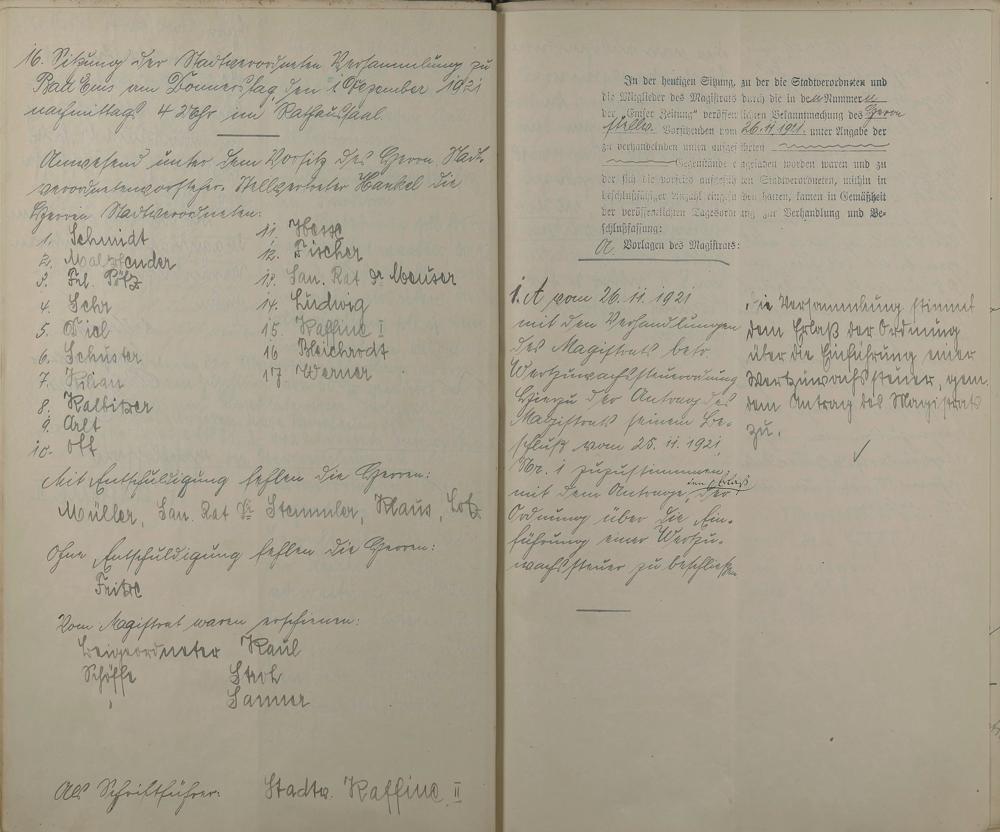 16. Sitzung der Stadtverordneten Versammlung zu
Bad Ems am Donnerstag, den 1 Dezember 1921
nachmittags 4 Uhr im Rathaussaal.
Anwesend unter dem Vorsitz des Herrn Stadt-
verordnetenvorsteher-Stellvertreter Hankel die
Herren Stadtverordneten:
1. Schmidt
2. Malzbender
3. Frl. Pötz
4. Sehr
5. Diel
6. Schuster
7. Kilian
8. Kalbitzer
9. Arlt
10. Ott
11. Hesse
12. Fischer
13. San. Rat Dr Meuser
14. Ludwig
15. Kaffine I
16 Bleichrodt
17 Werner
Mit Entschuldigung fehlen die Herren:
Müller, San. Rat Dr Stemmler, Klaus, Lotz
Ohne Entschuldigung fehlen die Herren:
Fritze
Vom Magistrat waren erschienen:
Beigeordneter Kaul
Schöffe Stroh
" Sanner
Als Schriftführer: Stadtv. Kaffine II
In der heutigen Sitzung, zu der die Stadtverordneten und
die Mitglieder des Magistrats durch die in der Nummer
der "Emser Zeitung" veröffentlichten Bekanntmachung des Herrn
stellv. Vorsitzenden vom 26.11.1921. unter Angabe der
zu verhandelnden unten aufgeführten
Gegenstände eingeladen worden waren und zu
der sich die vorseits aufgeführten Stadtverordneten, mithin in
beschlußfähiger Anzahl eingefunden hatten, kamen in Gemäßheit
der veröffentlichten Tagesordnung zur Verhandlung und Be-
schlußfassung:
A. Vorlagen des Magistrats:
1. A, vom 26.11.1921
mit den Verhandlungen
des Magistrats betr.
Wertzuwachssteuerordnung
Hierzu der Antrag des
Magistrats seinem Be-
schluß vom 25.11.1921,
Nr. 1 zuzustimmen,
mit dem Antrage, den Erlaß der
Ordnung über die Ein-
führung einer Wertzu-
wachssteuer zu beschließen
Die Versammlung stimmt
dem Erlaß der Ordnung
über die Einführung einer
Wertzuwachssteuer, gem.
dem Antrag des Magistrats
zu.